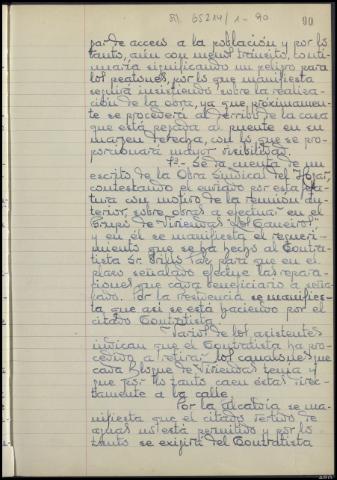 65214/1-90
90
par de acceso a la población y por lo
tanto, aún con menos tránsito, conti-
nuaría significando un peligro para
los peatones, por lo que manifiesta
seguirá insistiendo sobre la realiza-
ción de la obra, ya que próximamen-
te se procederá al derribo de la casa
que está pegada al puente en su
margen derecha, con lo que se pro-
porcionará mayor visibilidad.
7º.- Se da cuenta de un
escrito de la Obra Sindical del Hogar,
contestando el enviado por esta
tura con motivo de la reunión an-
terior, sobre obras a efectuar en el
Grupo de Viviendas
y en él se manifiesta el requeri-
miento que se ha hecho al Contra-
tista Sr. para que en el
plazo señalado efectúe las repara-
ciones que cada beneficiario a seña-
lado. Por la Presidencia se manifies-
ta que así se está haciendo por el
citado Contratista.
Varios de los asistentes
indican que el Contratista ha pro-
cedido a retirar los canalones que
cada Bloque de Viviendas tenía y
que por lo tanto caen estas direc-
tamente a la calle.
Por la alcaldía se ma-
nifiesta que el citado vertido de
aguas no está permitido y por lo
tanto se exigirá del Contratista